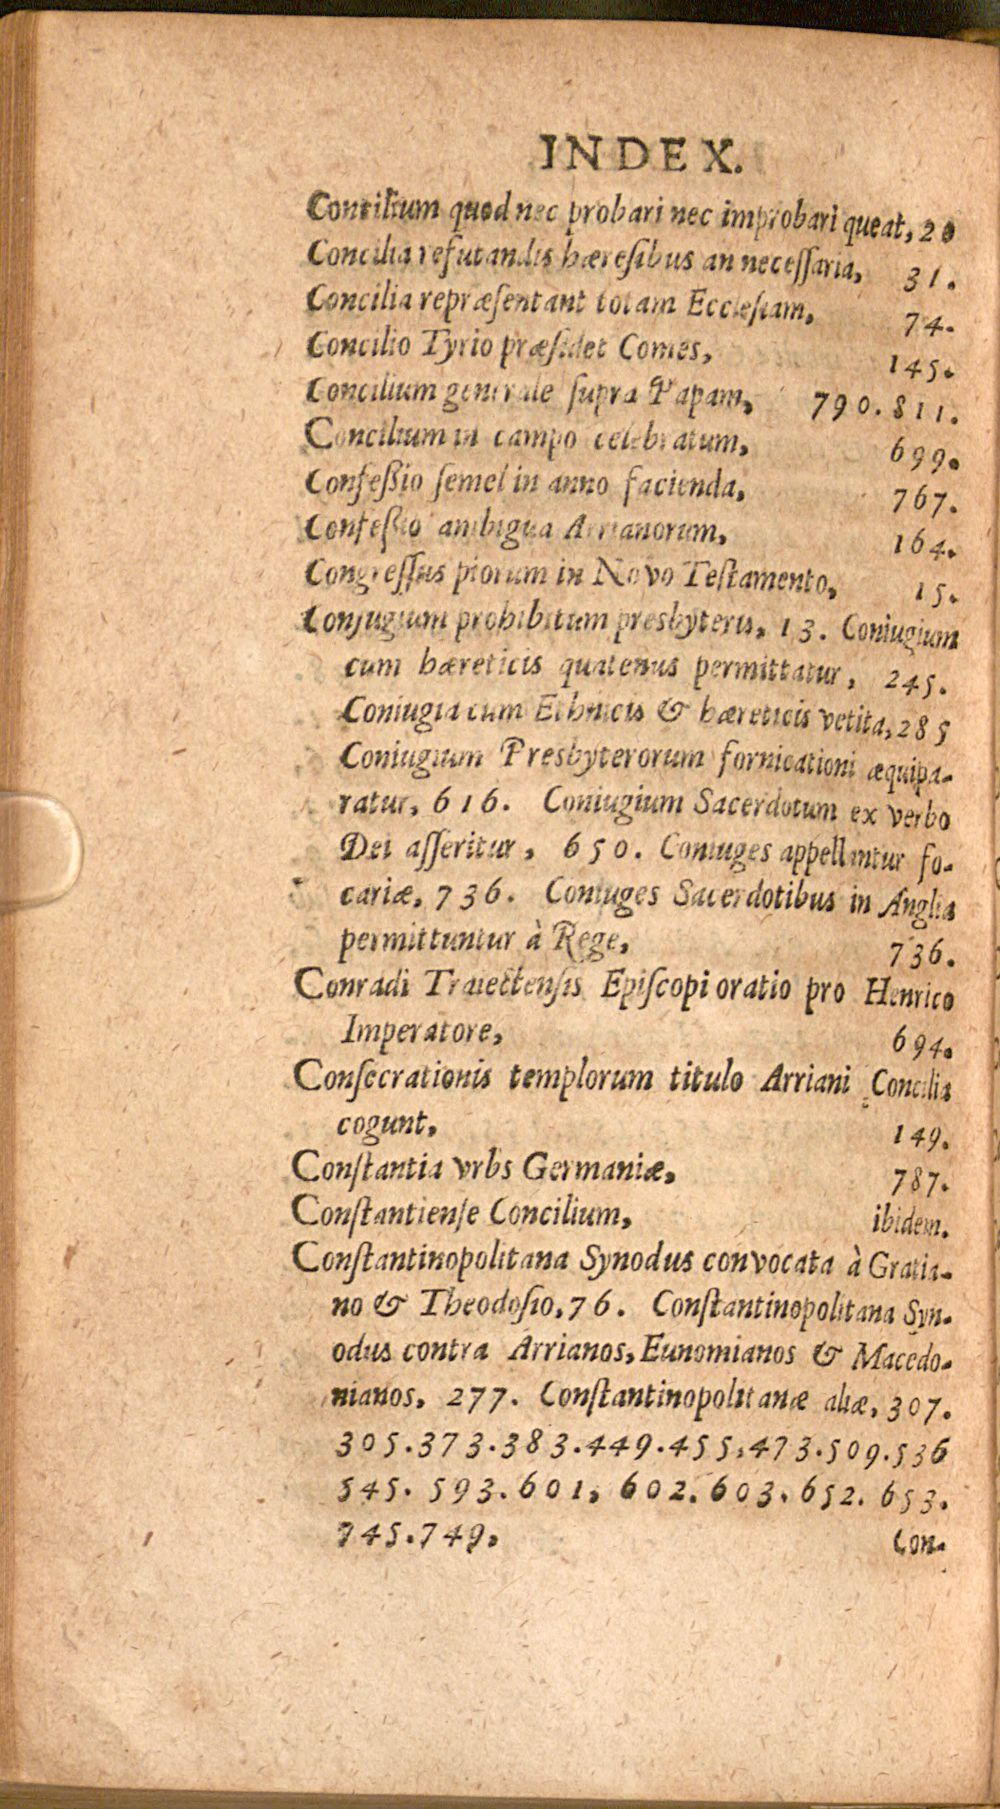 INDEX.
Concilium quod nec probari nec improbari queat, 20
Concilia refutandis hæresibus an necessaria, 31.
Concilia repræsentant totam Ecclesiam, 74.
Concilio Tyrio præsidet Comes, 145.
Concilium generale supra Papam, 790. 811.
Concilium in campo celebratum, 699.
Confeßio semel in anno facienda, 767.
Confeßio ambigua Arrianorum, 164.
Congressus piorum in Novo Testamento, 15.
Conjugium prohibitum presbyteris, 13. Coniugium
cum hæreticis quatenus permittatur, 245.
Coniugia cum Ethnicis & hæreticis vetita, 285
Coniugium Presbyterorum fornicationi æquipa-
ratur, 616. Coniugium Sacerdotum ex verbo
Dei asseritur, 650. Coniuges appellantur fo-
cariæ, 736. Coniuges Sacerdotibus in Anglia
permittuntur à Rege, 736.
Conradi Traiectensis Episcopi oratio pro Henrico
Imperatore, 694.
Consecrationis templorum titulo Arriani Concilia
cogunt, 149.
Constantia vrbs Germaniæ, 787.
Constantiense Concilium, ibidem.
Constantinopolitana Synodus convocata à Gratia-
no & Theodosio, 76. Constantinopolitana Syn-
odus contra Arrianos, Eunomianos & Macedo-
nianos, 277. Constantinopolitanæ aliæ, 307.
305. 373. 383. 449. 455, 473. 509. 536
545. 593. 601, 602. 603. 652. 653.
745. 749. Con-